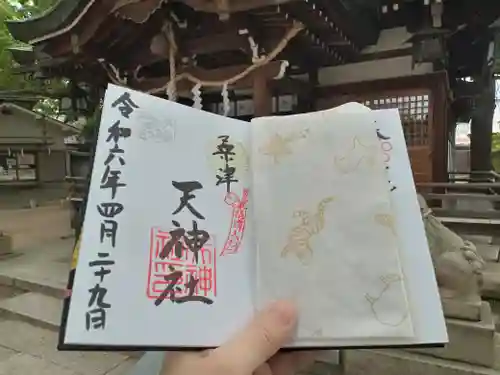 桑津
天神社
令和六年四月二十九日